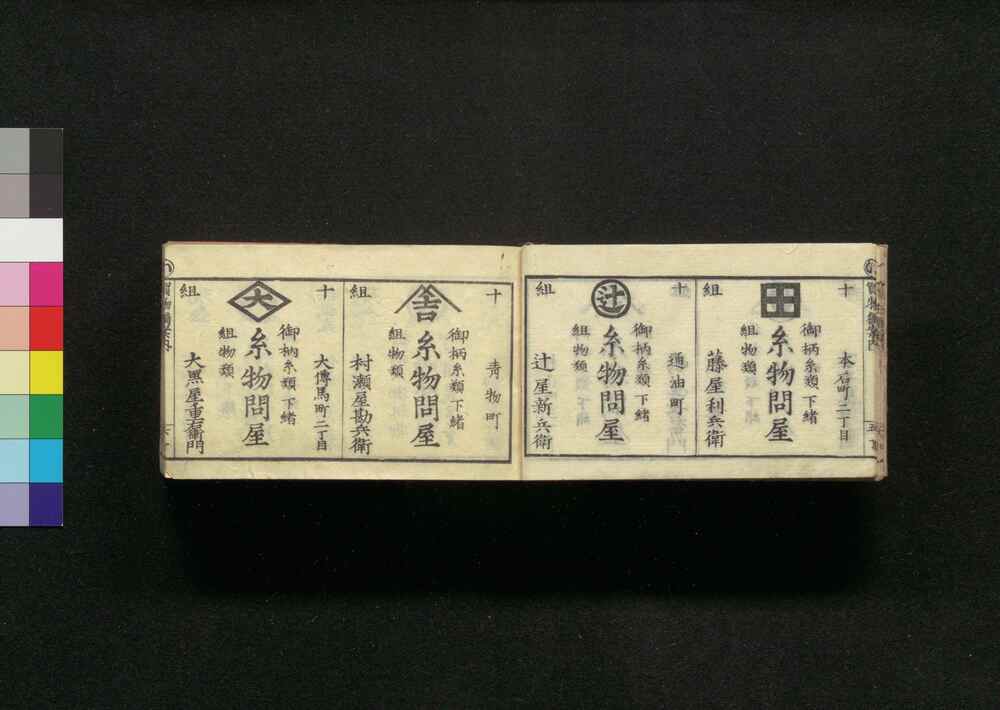 十
組
本石町二丁目
御柄糸類下緒
糸物問屋
組物類
藤屋利兵衛
十
組
通油町
辻
御柄糸類下緒
糸物問屋
組物類
辻屋新兵衛
十
組
青物町
吉
御柄糸類下緒
糸物問屋
組物類
村瀬屋勘兵衛
十
組
大傳馬町二丁目
大
御柄糸類下緒
糸物問屋
組物類
大黒屋重右衛門